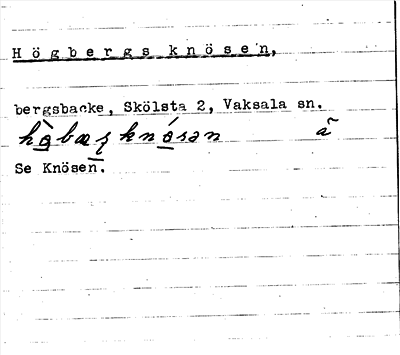 Högbergs knösen,
bergsbacke, Skölsta 2, Vaksala sn.
Se Knösen.